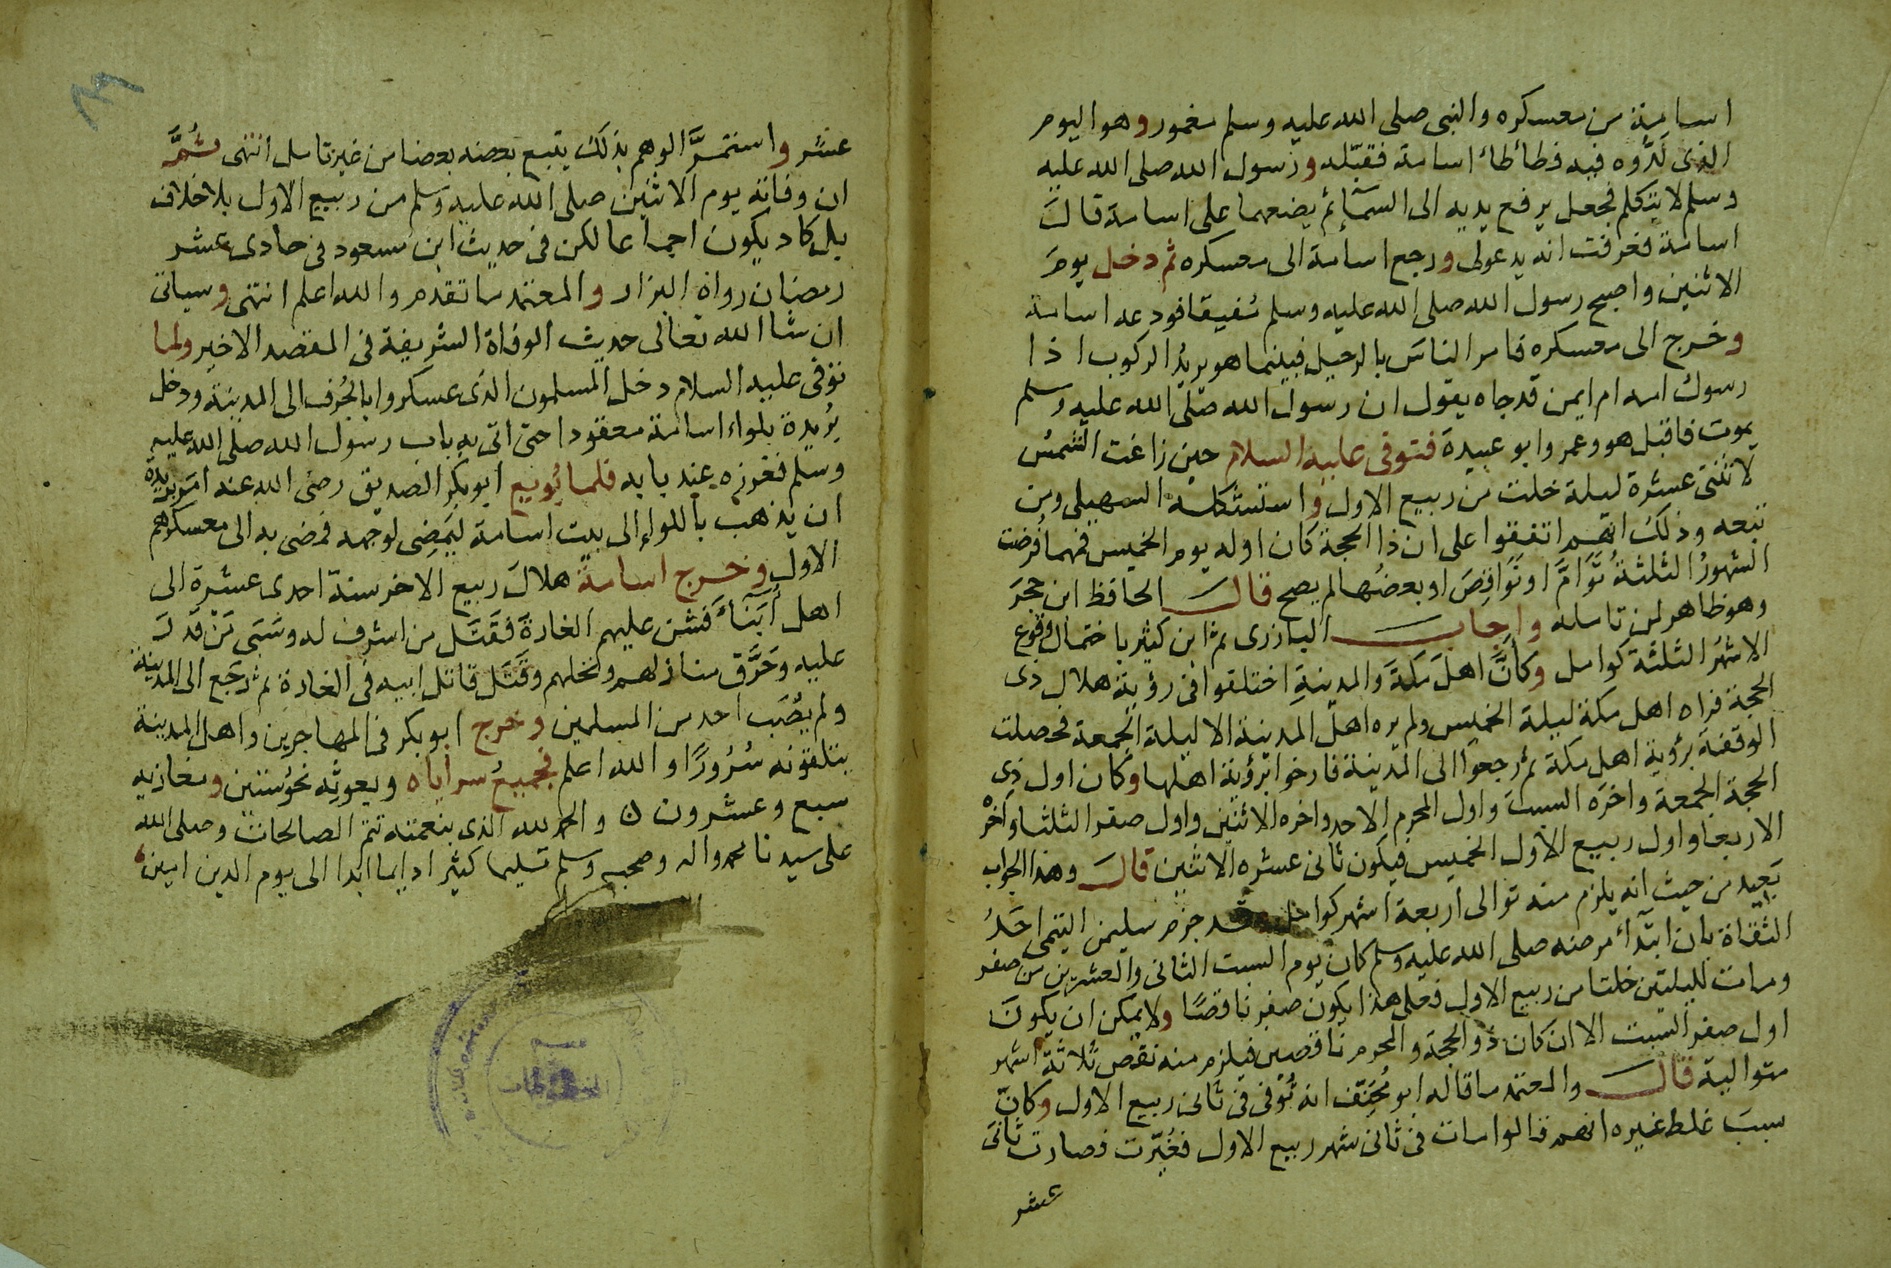 اسامة من معسكره والنبى صلى الله عليه وسلم مغمور وهو اليوم
الذى لَدُّوه فيه فطأطأ اسامة فقبّله ورسول الله صلى الله عليه
وسلم لا يتكلم فجعل يرفع يديه الى السمآء ثم يضعهما على اسامة قال
اسامة فعرفت انه يدعولى ورجع اسامة الى معسكره ثم دخل يومَ
الاثنين واصبح رسول الله صلى الله عليه وسلم مُفيقا فودعه اسامة
وخرج الى معسكره فامر الناسَ بالرحيل فبينما هو يريدُ الركوب اذا
رسول امه ام ايمن قد جاه يقول ان رسول الله صلى الله عليه وسلم
يموت فاقبل هو وعمر وابو عبيدة فتوفى عليه السلام حين زاغت الشمسُ
لاثنتى عشرة ليلة خلت من ربيع الاول واستشكله السهيلى ومن
تبعه وذلك انهم اتفقوا على ان ذا الحجة كان اوله يوم الخميس فمهما فُرضت
الشهورُ الثلثةُ تَوَامَّ او نَوَاقِصَ او بعضُها لم يصح قال الحافظ ابن حجرَ
وهو ظاهر لمن تامله واجاب البارزى ثم ابن كثير باحتمال وقوع
الاشهُر الثلثة كوامل وكانَّ اهلَ مكةَ والمدينةِ اختلفوا فى رؤية هلال ذى
الحجة فراه اهل مكة ليلة الخميس ولم يره اهل المدينة الا ليلة الجمعة فحصلت
الوقفةَ برؤية اهل مكة ثم رجعوا الى المدينة فارخوا برؤية اهلها وكان اول ذى
الحجة الجمعة واخرَه السبت واول المحرم الاحد واخره الاثنين واول صفر الثلثا واخره
الاربعا واول ربيع الاول الخميس فيكون ثانى عشره الاثنين قال وهذا الجواب
بعيد من حيث انه يلزم منه توالى اربعة اشهر كوامل وقد جزم سليمن التيمى احَدُ
الثقاة بان ابتداء مرضه صلى الله عليه وسلم كان يوم السبت الثانى والعشرين من صفر
ومات لليلتين خلتا من ربيع الاول فعلى هذا يكون صفر ناقصًا ولا يمكن ان يكونَ
اول صفر السبت الا ان كان ذو الحجة والمحرم ناقصين فيلزم منه نقص ثلاثة اشهر
متوالية قال والمعتمد ما قاله ابو مُخنَف انه تُوُفى فى ثانى ربيع الاول وكانّ
سببَ غلط غيره انهم قالوا مات فى ثانى شهر ربيع الاول فغُيّرت فصارت ثانىَ
عشر
عشر واستمرَّ الوهم بذلك يتبع بعضه بعضا من غير تامل انتهى ثُمَّ
ان وفاته يوم الاثنين صلى الله عليه وسلم من ربيع الاول بلا خلاف
بل كاد يكون اجماعا لكن فى حديث ابن مسعود فى حادى عشر
رمضان رواه البزار والمعتمد ما تقدم والله اعلم انتهى وسياتى
ان شا الله تعالى حديث الوفاة الشريفة فى المقصد الاخير ولما
توفى عليه السلام دخل المسلمون الذى عسكروا بالجُرف الى المدينة ودخل
بُريدة بلواء اسامة معقودا حتى اتى به باب رسول الله صلى الله عليه
وسلم فغرزه عند بابه فلما بُويع ابو بكر الصديق رضى الله عنه امر بريدة
ان يذهب باللواء الى بيت اسامة ليَمضِى لوجهه فمضى به الى معسكرهم
الاول وخرج اسامةُ هلالَ ربيع الاخر سنة احدى عشرة الى
اهل اُبَناءَ فشن عليهم الغارة فقَتَل من اشرف له وسَبَى مَن قدَرَ
عليه وحَرَّق منازلهم ونخلهم وقَتَل قاتل ابيه فى الغارة ثم رَجَع الى المدينة
ولم يُصَب احد من المسلمين وخرج ابو بكر فى المهاجرين واهل المدينة
يتلقونه سُرُورًا والله اعلم فجميعُ سراياه وبعوثِه نحوُ ستين ومغازيه
سبع وعشرون والحمد لله الذى بنعمته تتم الصالحات وصلى الله
على سيدنا محمد واله وصحبه وسلم تسليما كثيرا دايما ابدا الى يوم الدين امين